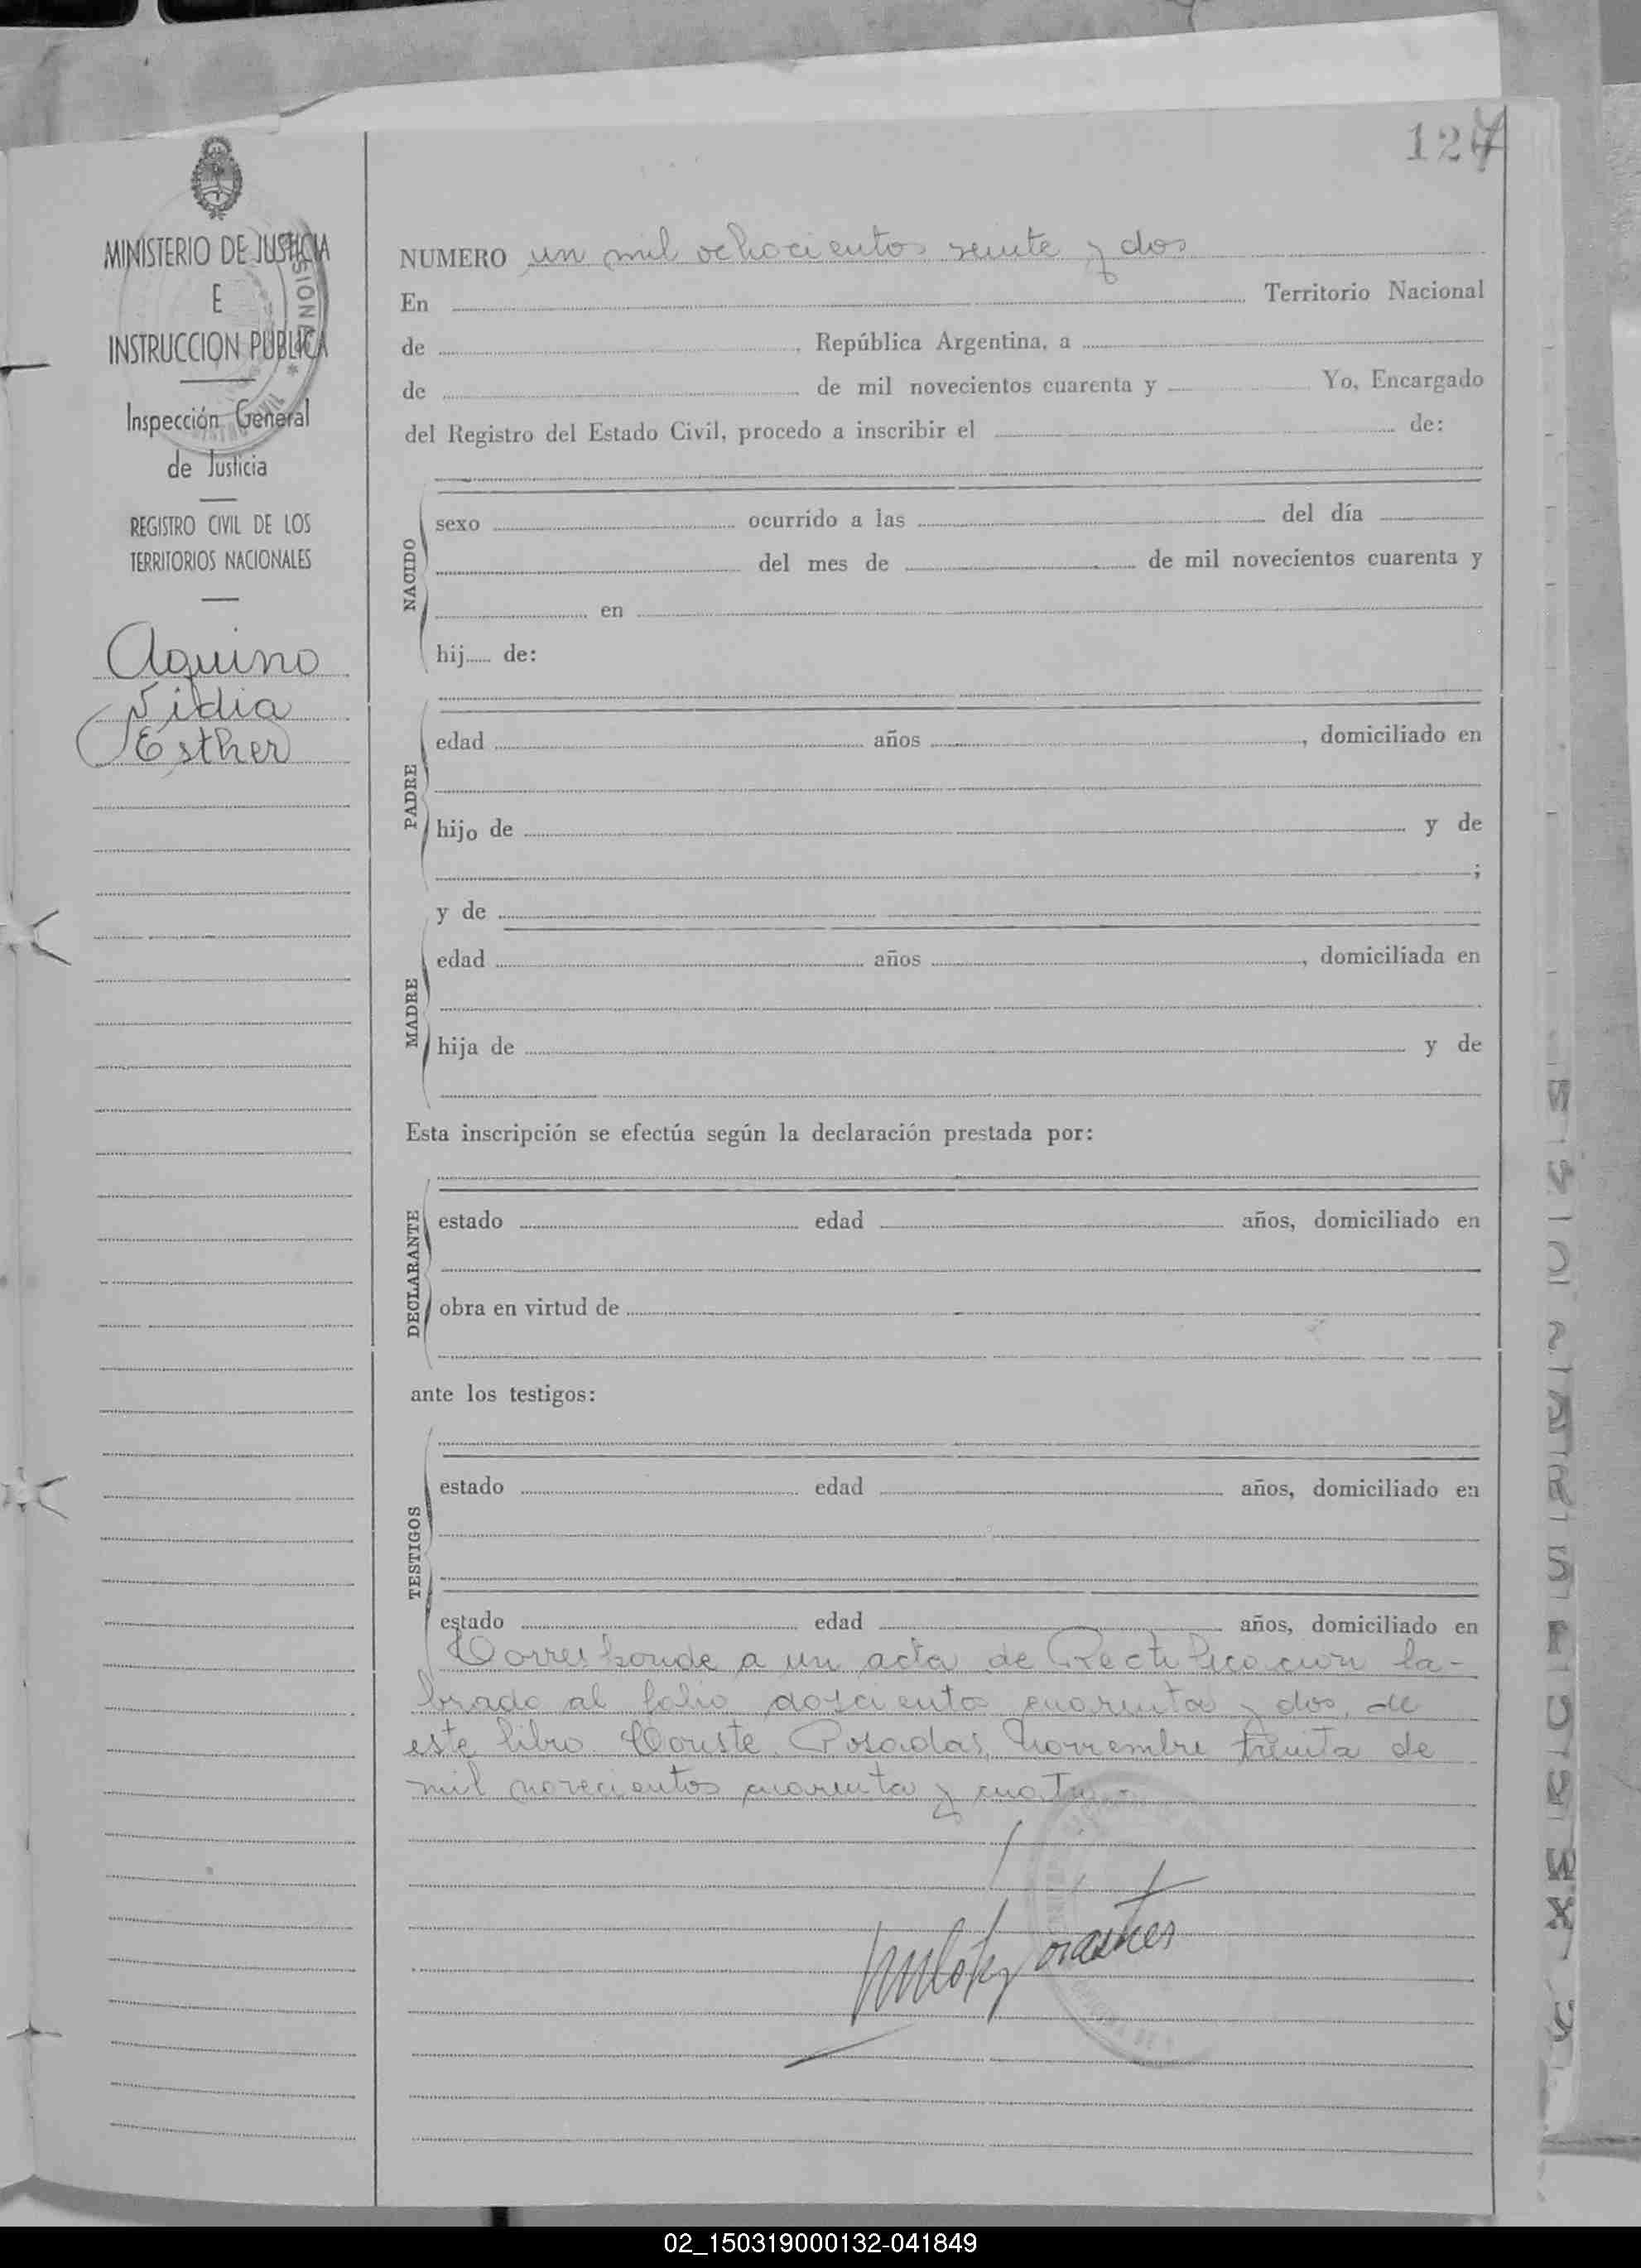 127
MINISTERIO DE JUSTICIA
E
INSTRUCCION PUBLICA
Inspección General
de Justicia
REGISTRO CIVIL DE LOS
TERRITORIOS NACIONALES
Aquino
Nidia
Esther
NUMERO un mil ochocientos veinte y dos
En Territorio Nacional
de , República Argentina, a
de de mil novecientos cuarenta y Yo, Encargado
del Registro del Estado Civil, procedo a inscribir el de:
NACIDO
sexo ocurrido a las del día
del mes de de mil novecientos cuarenta y
en
hij de:
PADRE
edad años , domiciliado en
hijo de y de
;
y de
MADRE
edad años , domiciliada en
hija de y de
Esta inscripción se efectúa según la declaración prestada por:
DECLARANTE
estado edad años, domiciliado en
obra en virtud de
ante los testigos:
TESTIGOS
estado edad años, domiciliado en
estado edad años, domiciliado en
Corresponde a un acta de Rectificacion la-
brado al folio doscientos cuarenta y dos, de
este libro. Conste. Posadas, Noviembre treinta de
mil novecientos cuarenta y cuatro.-
02_150319000132-041849